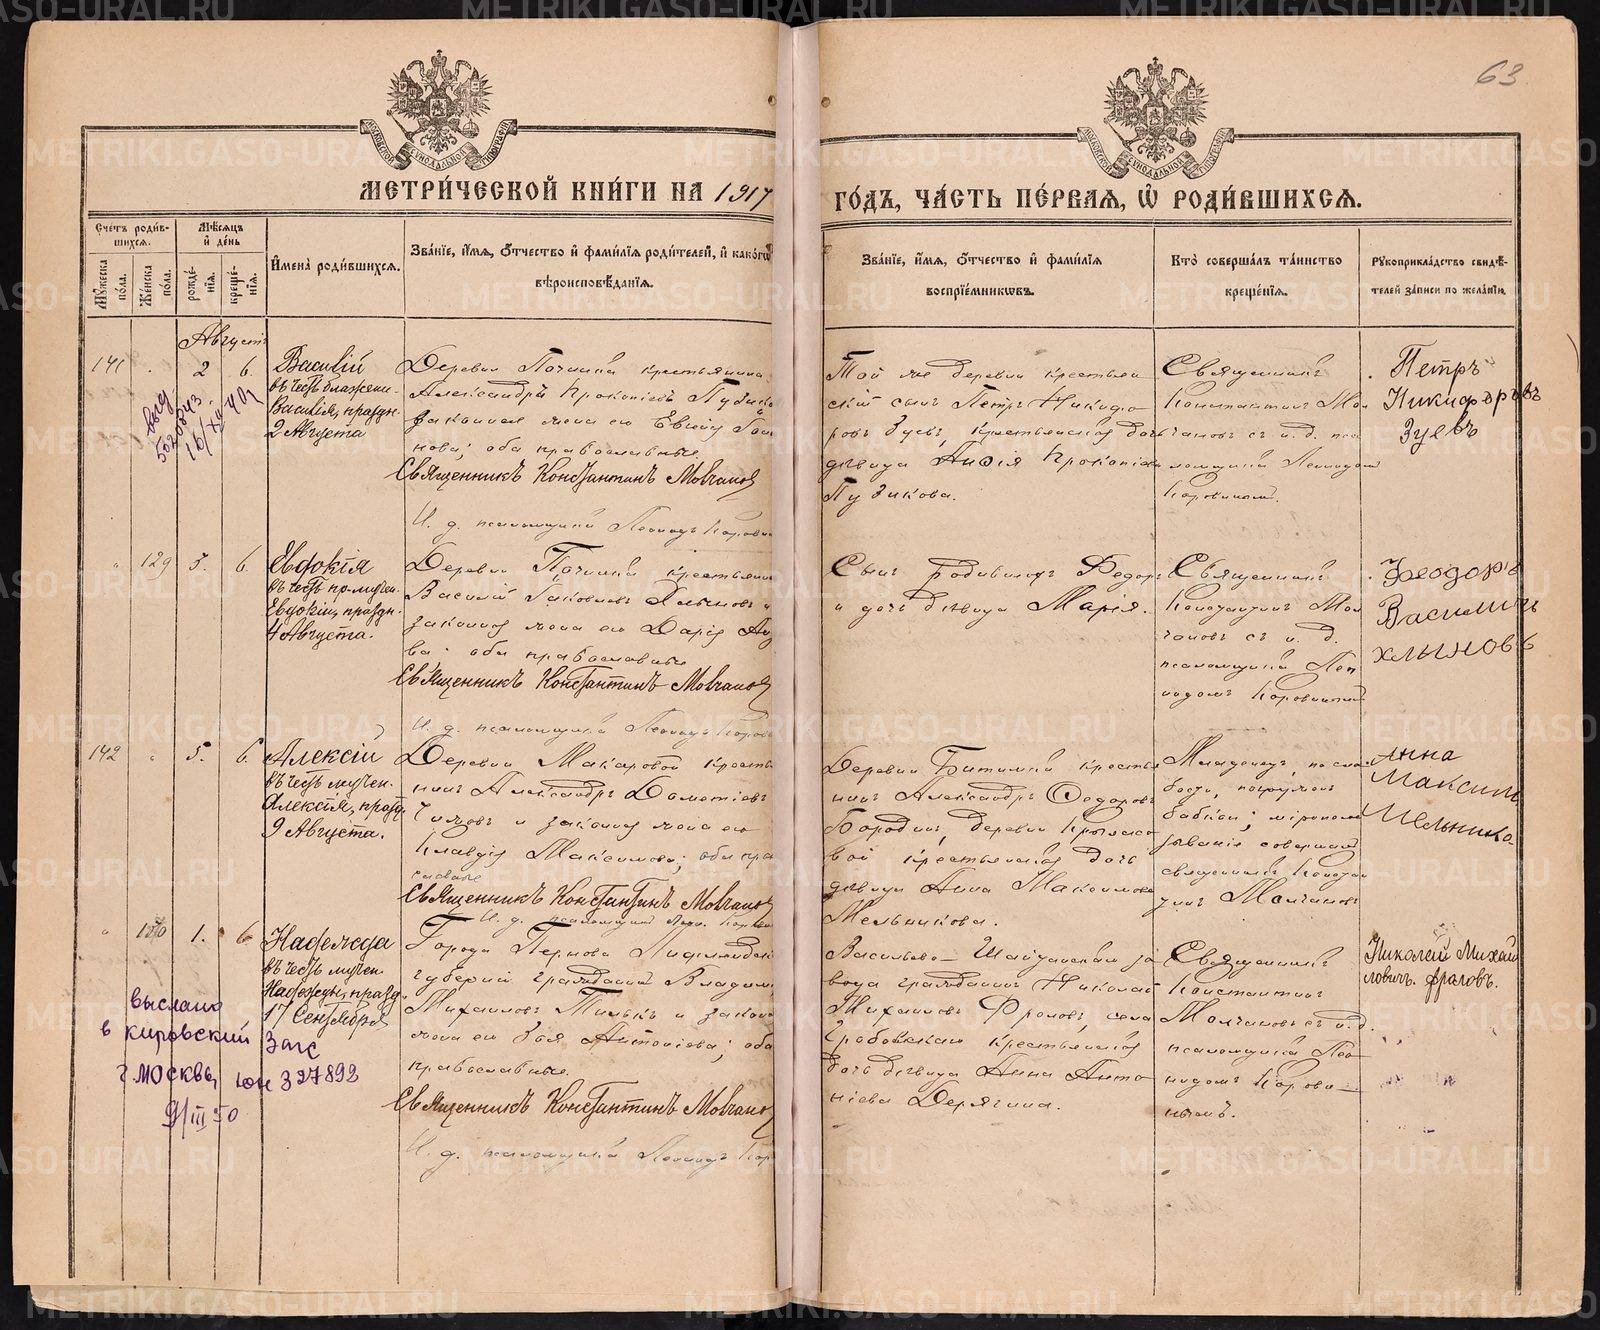 63
МОСКОВСКОЙ СѴНОДАЛЬНОЙ ТИПОГРАФІИ
МОСКОВСКОЙ СѴНОДАЛЬНОЙ ТИПОГРАФІИ
МЕТРИ́ЧЕСКОЙ КНИ́ГИ НА 1917
ГО́ДЪ, ЧА́СТЬ ПЕ́РВАѦ, Ѡ҆ РОДИ́ВШИХСѦ.
Сче́тъ роди́в-
шихсѧ.
Мꙋ́жеска по́ла.
Же́нска по́ла.
Мѣ́сѧцъ
и҆ де́нь
рожде́-
нїѧ.
креще́-
нїѧ.
И҆мена̀ роди́вшихсѧ.
Зва́нїе, и҆́мѧ, ѻ҆́тчество и҆ фами́лїѧ роди́телей, и҆ како́гѡ
вѣроисповѣ́данїѧ.
Зва́нїе, и҆́мѧ, ѻ҆́тчество и҆ фами́лїѧ
воспрїе́мникѡвъ.
Кто̀ соверша́лъ та́инство
креще́нїѧ.
Рꙋкоприкла́дство свидѣ́-
телей за́писи по жела́нїю.
Августъ
141 2 6. Василій
въ честь блажен.
Василія, праздн.
2 Августа
выд
5020843
16/XII 40
Деревни Починка крестьянинъ
Александръ Прокопіевъ Пузико
законная жена его
нова; оба православные.
Священникъ Константинъ Мовчанов
И. д. псаломщика Леонидъ Корови
Той же деревни крестьян
скій сынъ Петръ Никифо
ровъ Зуевъ, крестьянская дочь
дѣвица Анфія Прокопіев
Пузикова.
Священникъ
Константинъ Мол
чановъ съ и. д. пса
ломщика Леонидом
Коровинымъ.
Петръ
Никифоровъ
Зуевъ
129 5. 6. Евдокія
въ честь прмучен.
Евдокіи, праздн.
4 Августа.
Деревни Починка крестьянин
Василій Іаковлевъ Хлыновъ и
законная жена его Дарія
ва: оба православные
Священникъ Константинъ Мовчанов
И. д. псаломщика Леонидъ Коров
Сынъ родившихъ Федоръ
и дочь дѣвица Марія.
Священникъ
Константинъ Мол
чановъ съ и. д.
псаломщика Лео
нидомъ Коровиным
Ѳеодоръ
Василичъ
хлыновъ
142 5. 6. Алексій
въ честь мучен.
Алексія, праздн.
9 Августа.
Деревни Макаровой крестья
нинъ Александръ Дометіевъ
и законная жена его
Клавдія Максимова; оба пра
славные
Священникъ Константинъ Мовчанов
И. д. псаломщика Леон. Коровин
Деревни Бритимки крестья
нинъ Александръ Федоровъ
Бородинъ, деревни Крылосо
вой крестьянская дочь
дѣвица Анна Максимова
Мельникова.
Младенецъ, по слаб
бости, погруженъ
бабкою; мѵропома
зываніе совершал
священникъ Констан
тинъ Молчановъ
Анна
Максим
Мельнико
130 1. 6 Надежда
въ честь мучен.
Надежды, празд.
17 Сентября
выслано
в кировский Загс
г. Москвы, юн 327892
9/III 50
Города Пернова Лифляндск
губерніи гражданинъ Владим
Михаиловъ и закон
жена его Зоя Антоніева; оба
православные.
Священникъ Константинъ Мовчанов
И. д. псаломщика Леонидъ Кор
Васильево-Шайтанскаго за
вода гражданинъ Николай
Михаиловъ Фроловъ, села
Гробовскаго крестьянская
дочь дѣвица Анна Анто
ніева Дерягина.
Священникъ
Константинъ
Молчановъ съ и. д.
псаломщика Лео
нидомъ Корови
нымъ.
Николай Михаи
ловичъ. Фраловъ.